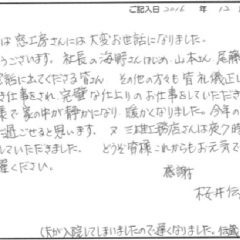 ご記入日 2016 年 12
は 窓工房さんには 大変お世話になりました。
うございます。社長の海野さんはじめ、山本さん、尾藤
してくださる皆さん その他の方々も 皆 礼儀正し
き仕事をされ、完璧な仕上りのお仕事をしていただき
様で家の中が静かになり、暖かくなりました。今年の
に過ごせると思います。又 三雄工務店さんは夜7時
していただきました。どうぞ皆様これからもお元気で
躍ください。
感謝
桜井
(夫が入院してしまいましたので遅くなりました。